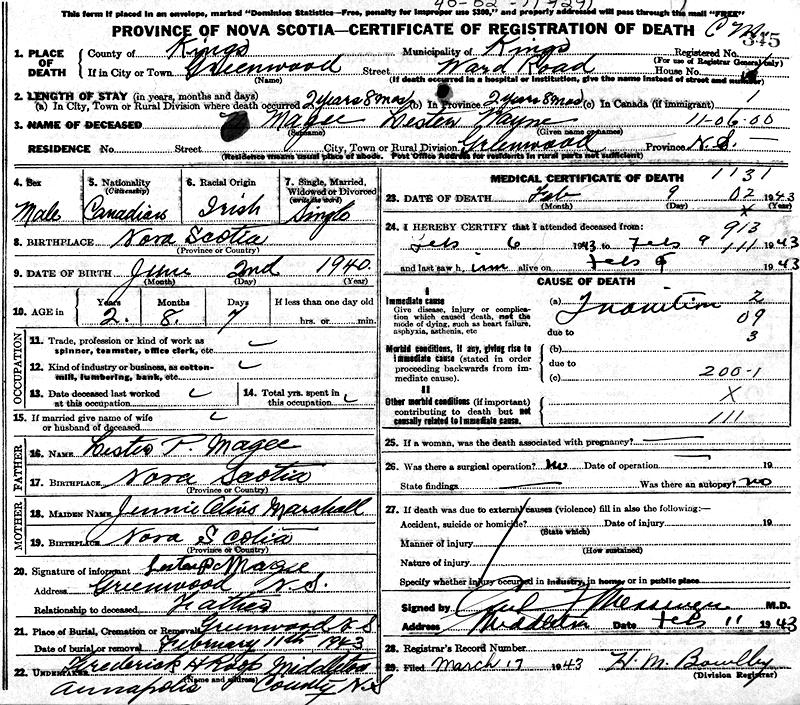 This form if placed in an envelope, marked "Dominion Statistics—Free, penalty for improper use $300," and properly addressed will pass through the mail "FREE"
PROVINCE OF NOVA SCOTIA—CERTIFICATE OF REGISTRATION OF DEATH
345
1. PLACE OF DEATH
County of Kings Municipality of Kings Registered No.
(For use of Registrar General only)
If in City or Town Greenwood Street Ward Road House No.
(Name) (If death occurred in a hospital or institution, give the name instead of street and number)
2. LENGTH OF STAY (in years, months and days)
(a) In City, Town or Rural Division where death occurred 2 years 8 mos (b) In Province 2 years 8 mos (c) In Canada (if immigrant) 1
3. NAME OF DECEASED Magee Wayne 11-06-00
(Surname) (Given name or names)
RESIDENCE No. Street City, Town or Rural Division Greenwood Province N.S.
(Residence means usual place of abode. Post Office Address for residents in rural parts not sufficient)
4. Sex Male
5. Nationality (Citizenship) Canadian
6. Racial Origin Irish
7. Single, Married, Widowed or Divorced (write the word) Single
8. BIRTHPLACE Nova Scotia
(Province or Country)
9. DATE OF BIRTH June 2nd 1940.
(Month) (Day) (Year)
10. AGE in Years 2. Months 8. Days 7 If less than one day old hrs. or min.
OCCUPATION
11. Trade, profession or kind of work as spinner, teamster, office clerk, etc.
12. Kind of industry or business, as cotton-mill, lumbering, bank, etc.
13. Date deceased last worked at this occupation
14. Total yrs. spent in this occupation
15. If married give name of wife or husband of deceased
FATHER
16. NAME Lester P. Magee
17. BIRTHPLACE Nova Scotia
(Province or Country)
MOTHER
18. MAIDEN NAME Jennie Marshall
19. BIRTHPLACE Nova Scotia
(Province or Country)
20. Signature of informant Lester P. Magee
Address Greenwood N.S.
Relationship to deceased Father
21. Place of Burial, Cremation or Removal Greenwood N S
Date of burial or removal February 11th 1943
22. UNDERTAKER Frederick H Middleton
(Name and address)
Annapolis County N.S
MEDICAL CERTIFICATE OF DEATH 1131
23. DATE OF DEATH Feb 9 02 1943
(Month) (Day) x (Year)
24. I HEREBY CERTIFY that I attended deceased from: 913
Feb 6 1943 to Feb 9 111 1943
and last saw him alive on Feb 9 1943
CAUSE OF DEATH
I
Immediate cause
Give disease, injury or complication which caused death, not the mode of dying, such as heart failure, asphyxia, asthenia, etc
(a) 2
09
due to 3
Morbid conditions, if any, giving rise to immediate cause (stated in order proceeding backwards from immediate cause).
(b)
due to
(c) 200-1
II
Other morbid conditions (if important) contributing to death but not causally related to immediate cause.
X
111
25. If a woman, was the death associated with pregnancy?
26. Was there a surgical operation? No Date of operation 19
State findings Was there an autopsy? no
27. If death was due to external causes (violence) fill in also the following:—
Accident, suicide or homicide? Date of injury 19
(State which)
Manner of injury
(How sustained)
Nature of injury
Specify whether injury occurred in industry, in home, or in public place
Signed by Messenger M.D.
Address Middleton Date Feb 11 1943
28. Registrar's Record Number
29. Filed March 17 1943 H. M. Bowlby
(Division Registrar)